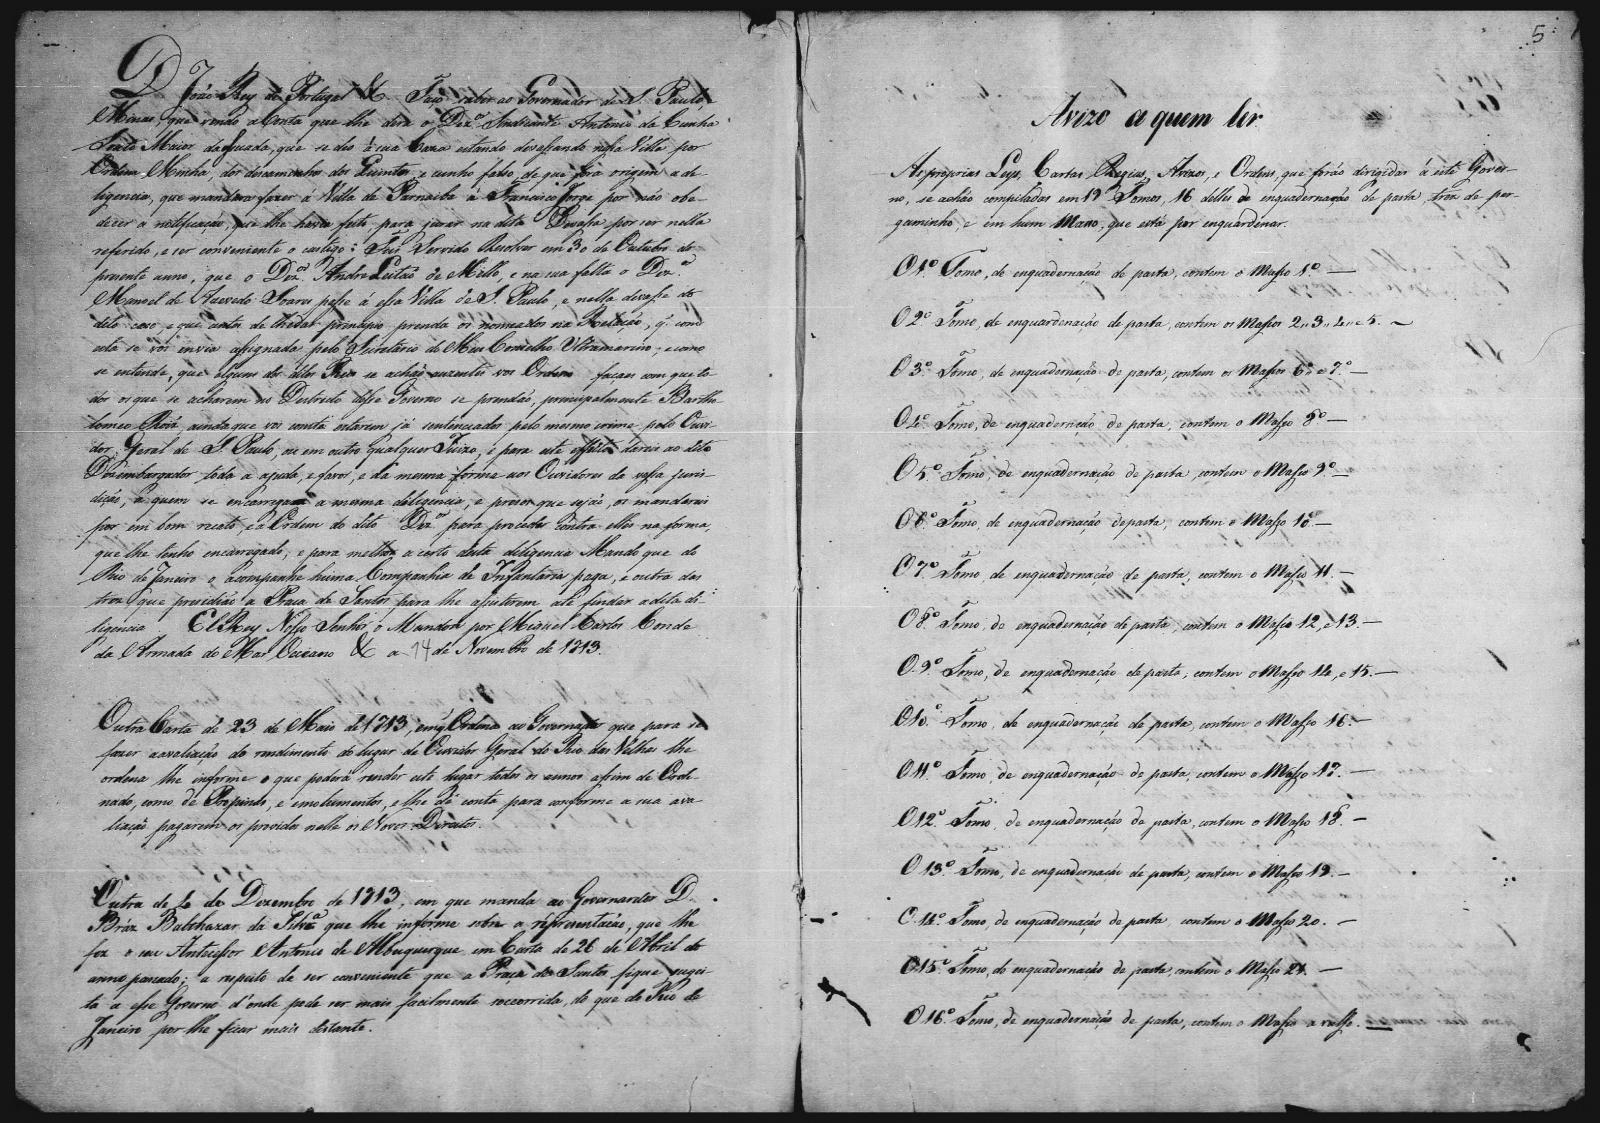 D. João Rey de Portugal &. Faço saber ao Governador de S. Paulo,
Minas, que vendo a Conta que lhe dera o Dez.or Sindicante Antonio da Cunha
Souto Maior da assuada, que se deo á sua Caza estando devassando nessa Villa por
Ordem Minha, dos descaminhos dos Quintos, e cunho falso, de que fora origem a de-
ligencia, que mandara fazer á Villa de Parnaiba á Francisco Jorge por não obe-
decer a notificação, que lhe havia feito para jurar na dita Devassa por ser nella
referido, e ser conveniente o castigo: Fui Servido Resolver em 30 de Outubro do
prezente anno, que o Dez.or Andre Leitão de Mello, e na sua falta o Dez.or
Manoel de Azevedo Soares passe á essa Villa de S. Paulo, e nella devasse do
dito caso, e que antes de lhe dar principio prenda os nomeados na Relação, q. com
esta se vos envia assignada pelo Secretario do Meu Conselho Ultramarino; e como
se entende, que alguns dos ditos Reos se achão auzentes vos Ordeno façaes com que to-
dos os que se acharem no Destricto desse Governo se prendão, principalmente Bartho-
lomeo Roiz ainda que vos conste estarem já sentenciados pelo mesmo crime pelo Ouvi-
dor Geral de S. Paulo, ou em outro qualquer Juizo, e para este effeito dareis ao dito
Dezembargador toda a ajuda, e favor, e da mesma forma aos Ouvidores da vossa juris-
dição, a quem se encarregara a mesma deligencia, e prezos que sejão, os mandareis
por em bom recato e á Ordem do dito Dez.or para proceder contra elles na forma,
que lhe tenho encarregado; e para melhor acerto desta deligencia Mando que do
Rio de Janeiro o acompanhe huma Companhia de Infantaria paga, e outra das
trez que presidião a Praça de Santos para lhe assistirem até findar a dita di-
ligencia El Rey Nosso Senhor o Mandou por Miguel Carlos Conde
da Armada do Mar Occeano & a 14 de Novembro de 1713.
Outra Carta de 23 de Maio de 1713, em q Ordena ao Governador que para se
fazer a avaliação do rendimento do lugar de Ouvidor Geral do Rio das Velhas lhe
ordena lhe informe o que poderá render este lugar todos os annos assim de Orde-
nado, como de Propinas, e emolumentos, e lhe dê conta para conforme a sua ava-
liação pagarem os providos nelle os Novos Direitos.
Outra de 4 de Dezembro de 1713, em que manda ao Governardor D.
Bráz Balthazar da Silva que lhe informe sobre a representação, que lhe
fez o seu Antecessor Antonio de Albuquerque em Carta de 26 de Abril do
anno passado; a respeito de ser conveniente que a Praça de Santos fique sugei-
ta a esse Governo d'onde pode ser mais facilmente soccorrida, do que do Rio de
Janeiro por lhe ficar mais distante.
5
Avizo a quem ler.
As proprias Leys, Cartas Regias, Avizos, e Ordens, que forão dirigidas á este Gover-
no, se achão compiladas em 19 Tomos, 16 delles de enquadernação de pasta, trez de per-
gaminho, e em hum Masso, que está por enquardenar.
O 1.º Tomo, de enquadernação de pasta, contem o Masso 1.º —
O 2.º Tomo, de enquardenação de pasta, contem os Massos 2,, 3,, 4,, e 5. —
O 3.º Tomo, de enquadernação de pasta, contem os Massos 6.º e 7.º —
O 4.º Tomo, de enquadernação de pasta, contem o Masso 8.º —
O 5.º Tomo, de enquadernação de pasta, contem o Masso 9.º —
O 6.º Tomo, de enquadernação de pasta, contem o Masso 10. —
O 7.º Tomo, de enquadernação de pasta, contem o Masso 11. —
O 8.º Tomo, de enquadernação de pasta, contem o Masso 12, e 13. —
O 9.º Tomo, de enquadernação de pasta, contem o Masso 14, e 15. —
O 10.º Tomo, de enquadernação de pasta, contem o Masso 16. —
O 11.º Tomo, de enquadernação de pasta, contem o Masso 17. —
O 12.º Tomo, de enquadernação de pasta, contem o Masso 18. —
O 13.º Tomo, de enquadernação de pasta, contem o Masso 19. —
O 14.º Tomo, de enquadernação de pasta, contem o Masso 20. —
O 15.º Tomo, de enquadernação de pasta, contem o Masso 21. —
O 16.º Tomo, de enquadernação de pasta, contem o Masso avulso. —